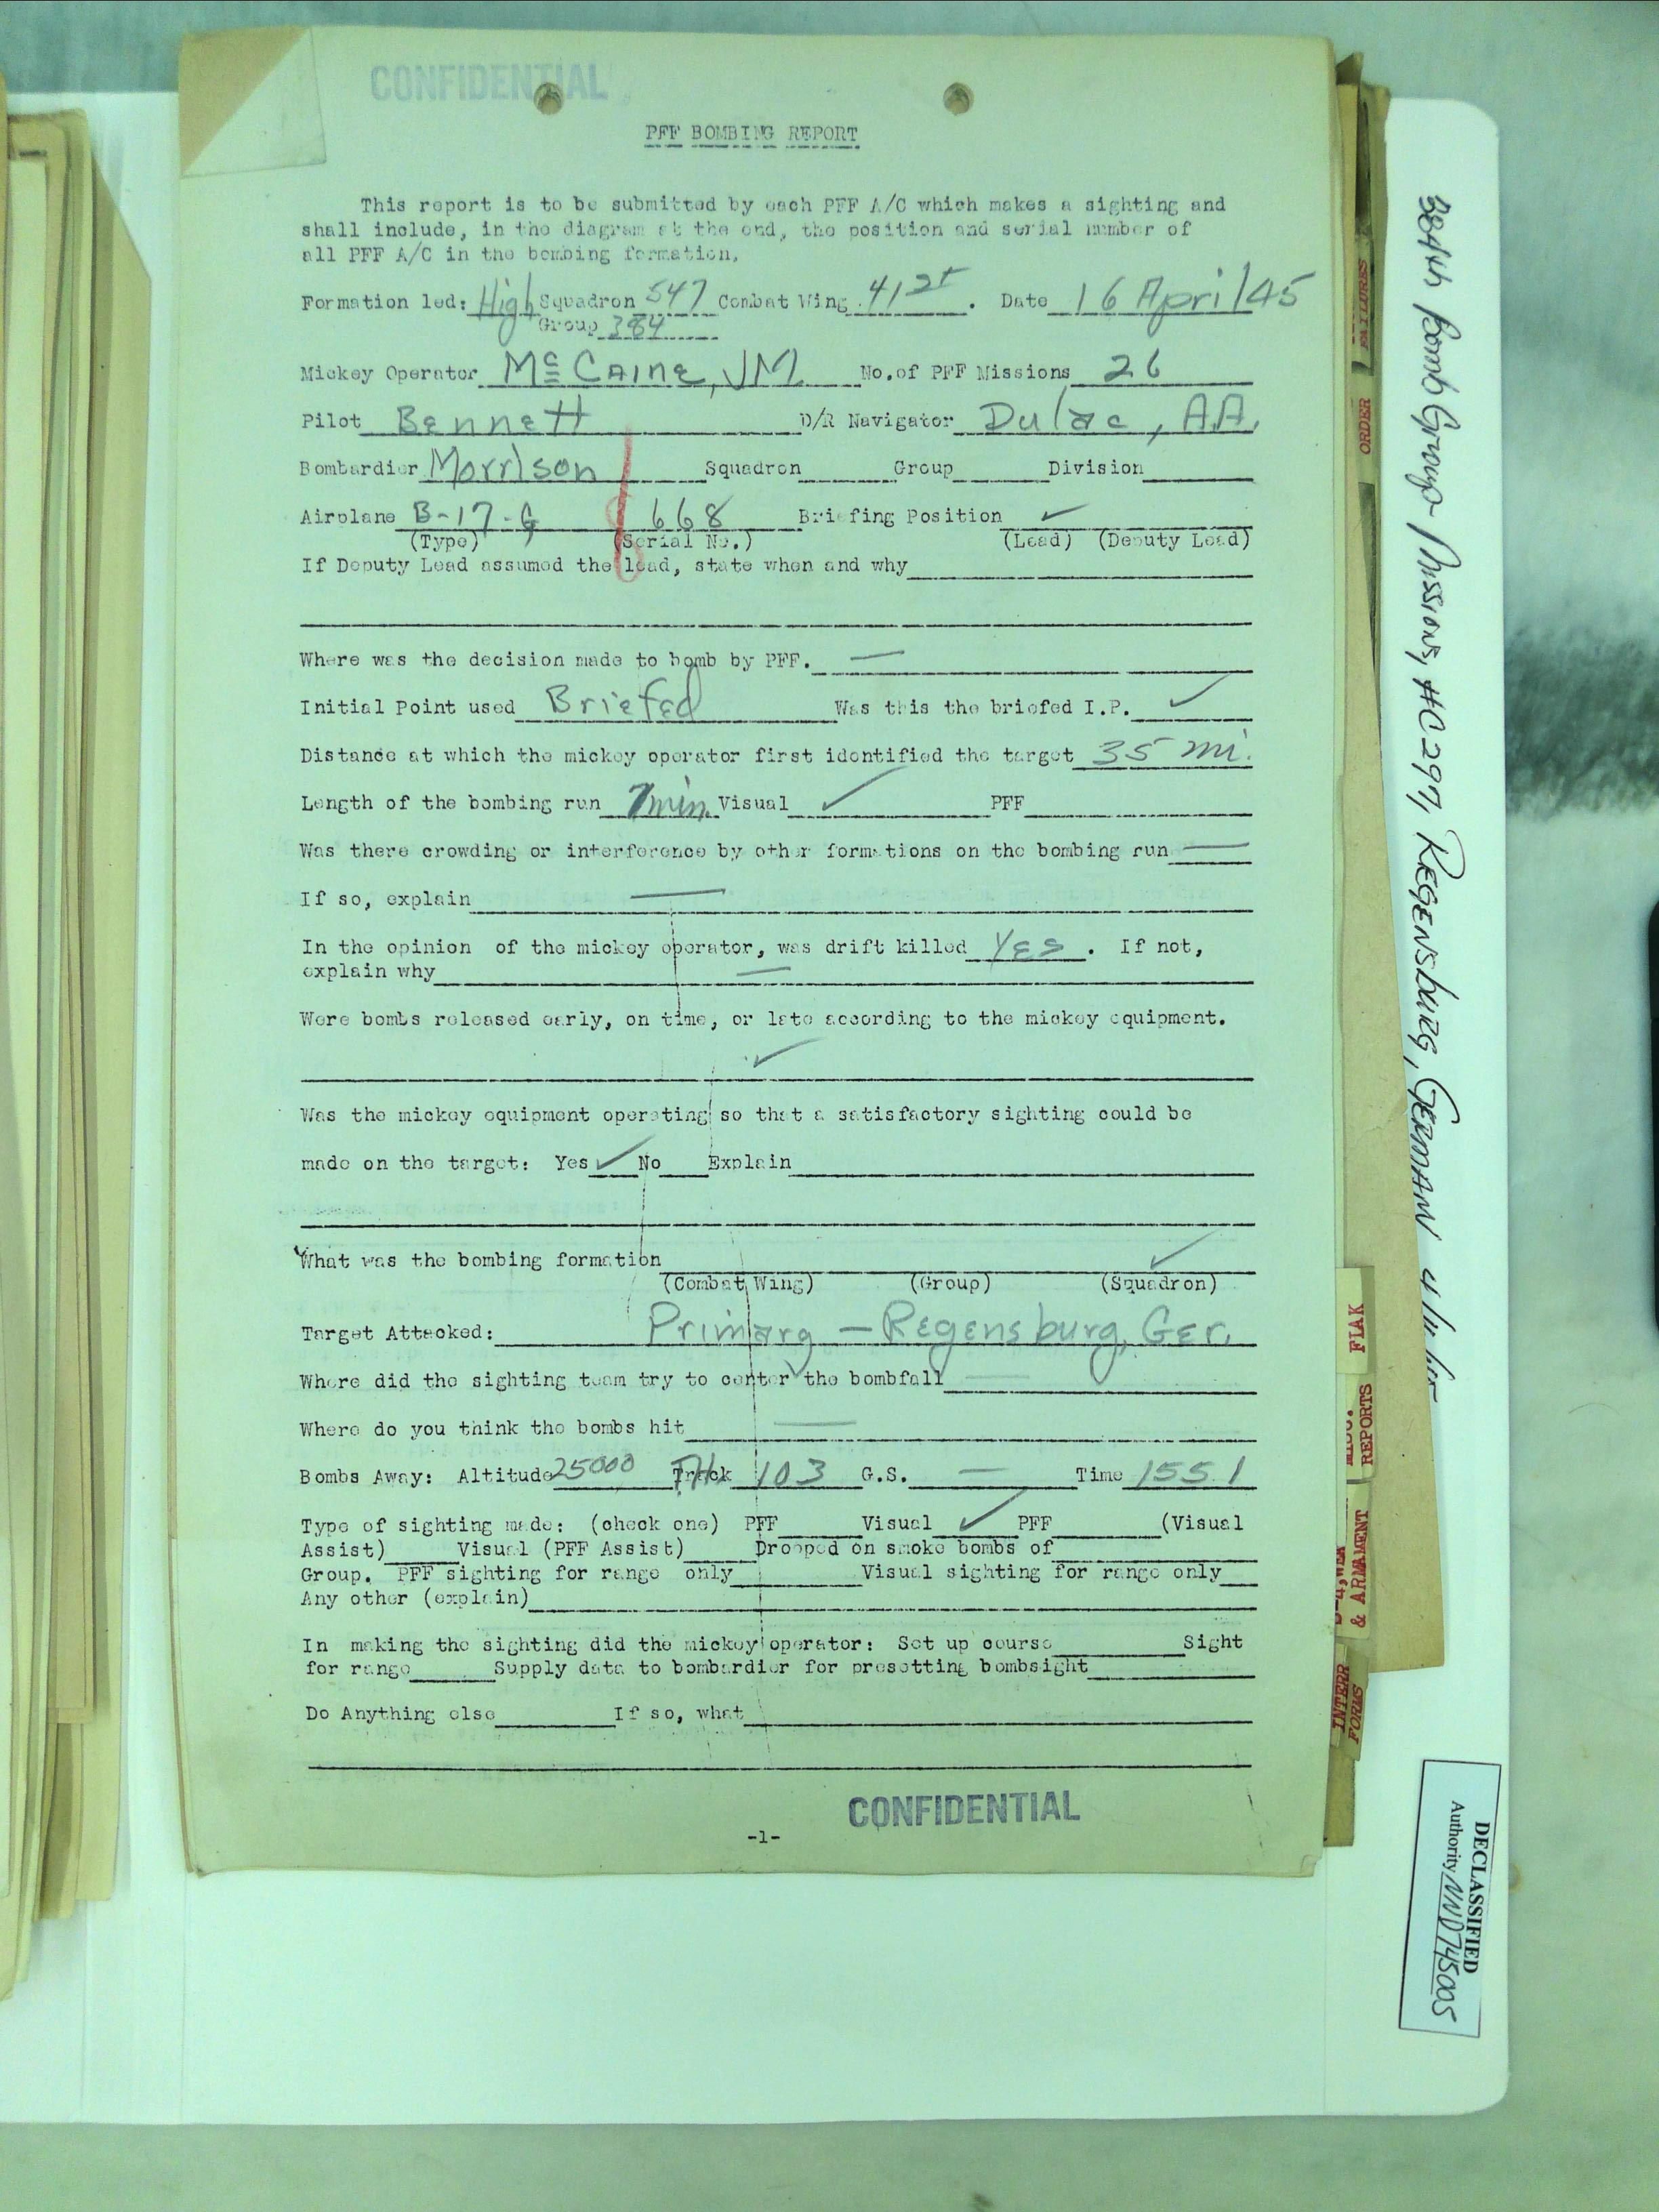 CONFIDENTIAL
PFF BOMBING REPORT
This report is to be submitted by each PFF A/C which makes a sighting and
shall include, in the diagram at the end, the position and serial number of
all PFF A/C in the bombing formation.
Formation led: High Squadron 547 Combat Wing 41st. Date 16 April 45
Group 384
Mickey Operator McCaine, JM No.of PFF Missions 26
Pilot Bennett D/R Navigator Dulac, A.A.
Bombardier Morrison Squadron Group Division
Airplane B-17-G 668 Briefing Position ✓
(Type) (Serial No.) (Lead) (Deputy Lead)
If Deputy Lead assumed the lead, state when and why
Where was the decision made to bomb by PFF. —
Initial Point used Briefed Was this the briefed I.P. ✓
Distance at which the mickey operator first identified the target 35 mi.
Length of the bombing run 7min. Visual ✓ PFF
Was there crowding or interference by other formations on the bombing run —
If so, explain —
In the opinion of the mickey operator, was drift killed YES. If not,
explain why —
Were bombs released early, on time, or late according to the mickey equipment.
✓
Was the mickey equipment operating so that a satisfactory sighting could be
made on the target: Yes ✓ No Explain
What was the bombing formation ✓
(Combat Wing) (Group) (Squadron)
Target Attacked: Primary — Regensburg, Ger.
Where did the sighting team try to center the bombfall —
Where do you think the bombs hit —
Bombs Away: Altitude 25000 Track 103 G.S. — Time 1551
Type of sighting made: (check one) PFF Visual ✓ PFF (Visual
Assist) Visual (PFF Assist) Dropped on smoke bombs of
Group. PFF sighting for range only Visual sighting for range only
Any other (explain)
In making the sighting did the mickey operator: Set up course Sight
for range Supply data to bombardier for presetting bombsight
Do Anything else If so, what
CONFIDENTIAL
-1-
FAILURES
ORDER
FLAK
REPORTS
& ARMAMENT
INTERR
FORMS
384th Bomb Group Missions, #C297, REGENSBURG, GERMANY
DECLASSIFIED
Authority NND745005